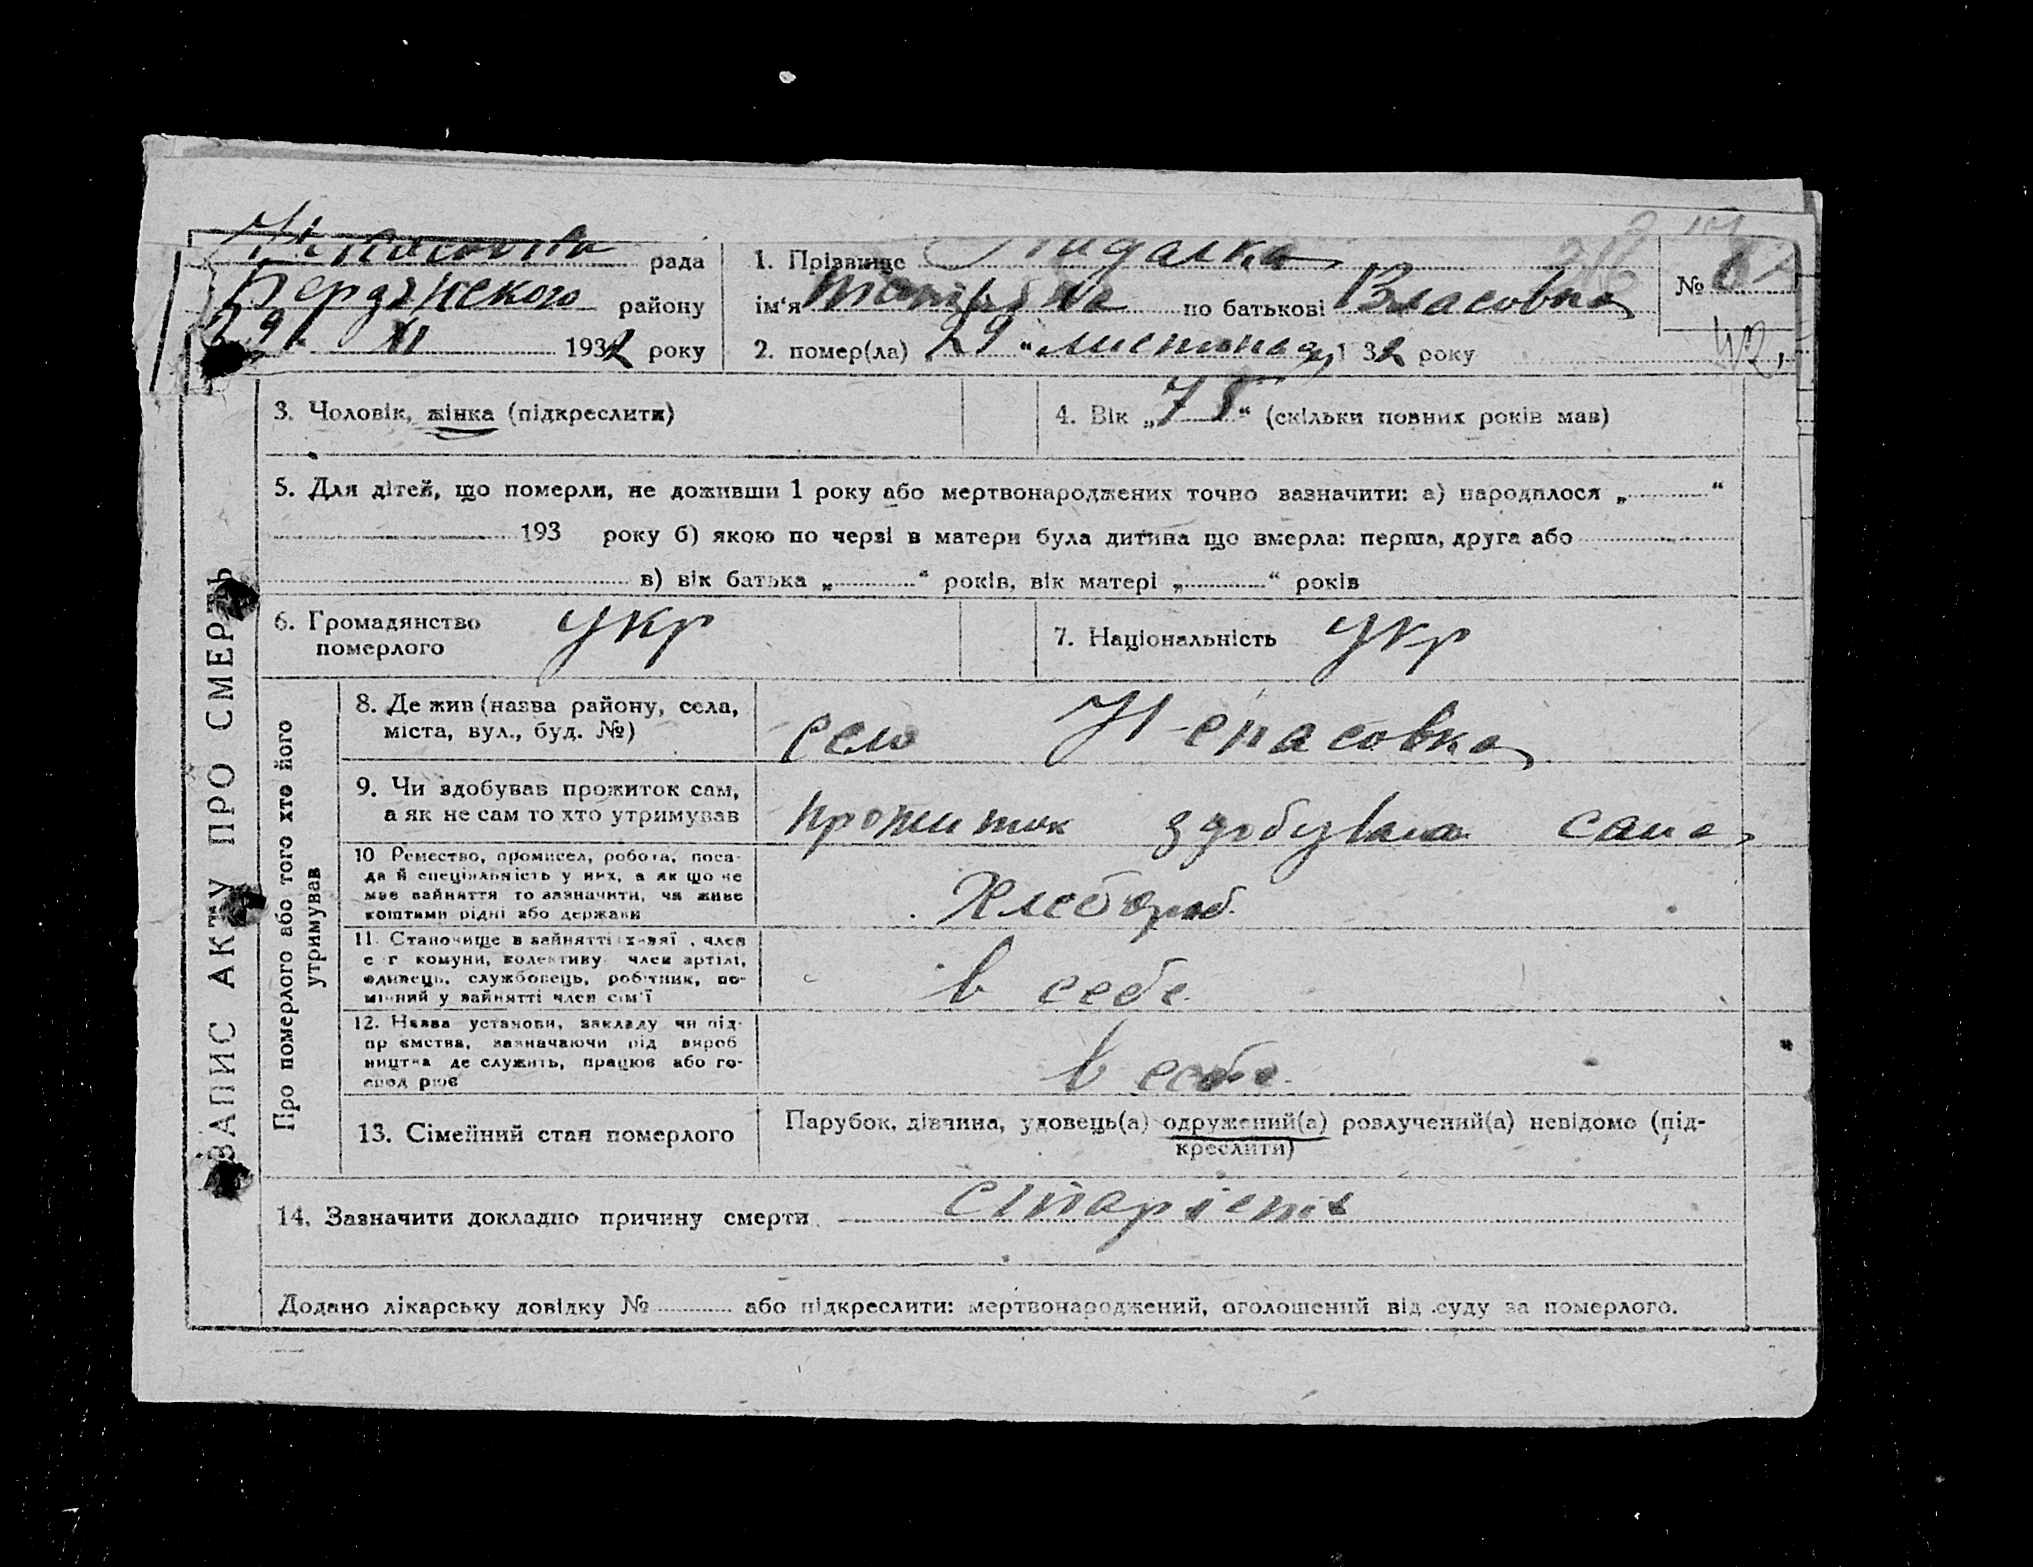 рада
Бердянского району
29 XI 1932 року
1. Прізвище
ім'я по батькові Власовна
№
2. помер(ла) 29 "листопад 1 32 року
3. Чоловік, жінка (підкреслити)
4. Вік „ “ (скільки повних років мав)
5. Для дітей, що померли, не доживши 1 року або мертвонароджених точно зазначити: а) народилося „ “
193 року б) якою по черзі в матери була дитина що вмерла: перша, друга або
в) вік батька „ “ років, вік матері „ “ років
6. Громадянство
померлого укр
7. Національність укр
ЗАПИС АКТУ ПРО СМЕРТЬ
Про померлого або того хто його
утримував
8. Де жив (назва району, села,
міста, вул., буд. №)
село
9. Чи здобував прожиток сам,
а як не сам то хто утримував
прожиток здобувала сама
10 Ремество, промисел, робота, поса-
да й спеціяльність у них, а як що не
має зайняття то зазначити, чи живе
коштами рідні або держави
Хлебороб.
11. Становище в зайнятті член
с г комуни, колективу член артілі,
одинець, службовець, робітник, по-
мічний у зайнятті член сім'ї
в себе
12. Назва установи, закладу чи під-
пр ємства, зазначаючи рід вироб
ництва де служить, працює або го-
спод рює
в себе.
13. Сімейний стан померлого
Парубок, дівчина, удовець(а) одружений(а) розлучений(а) невідомо (під-
креслити)
14. Зазначити докладно причину смерти
Додано лікарську довідку № або підкреслити: мертвонароджений, оголошений від суду за померлого.